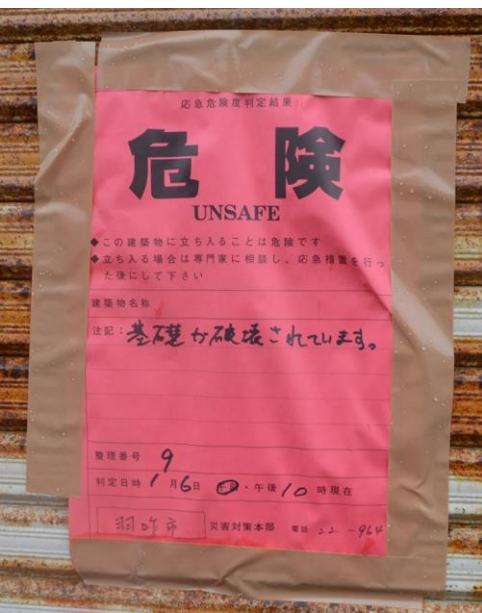 応急危険度判定結果
危険
UNSAFE
◆この建築物に立ち入ることは危険です
◆立ち入る場合は専門家に相談し、応急措置を行っ
た後にして下さい
建築物名称
注記：基礎が破壊されています。
整理番号 9
判定日時 1月6日 午前・午後 10 時現在
羽咋市 災害対策本部 電話 22-964